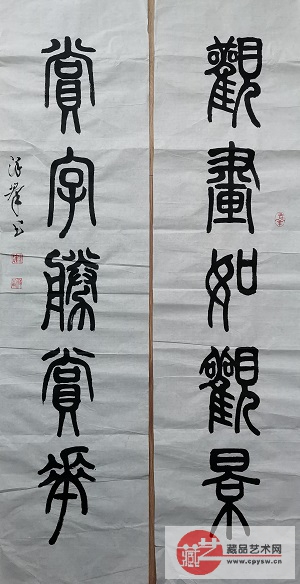 觀畫如觀景
賞字勝賞花
藏品艺术网
www.cpysw.cn